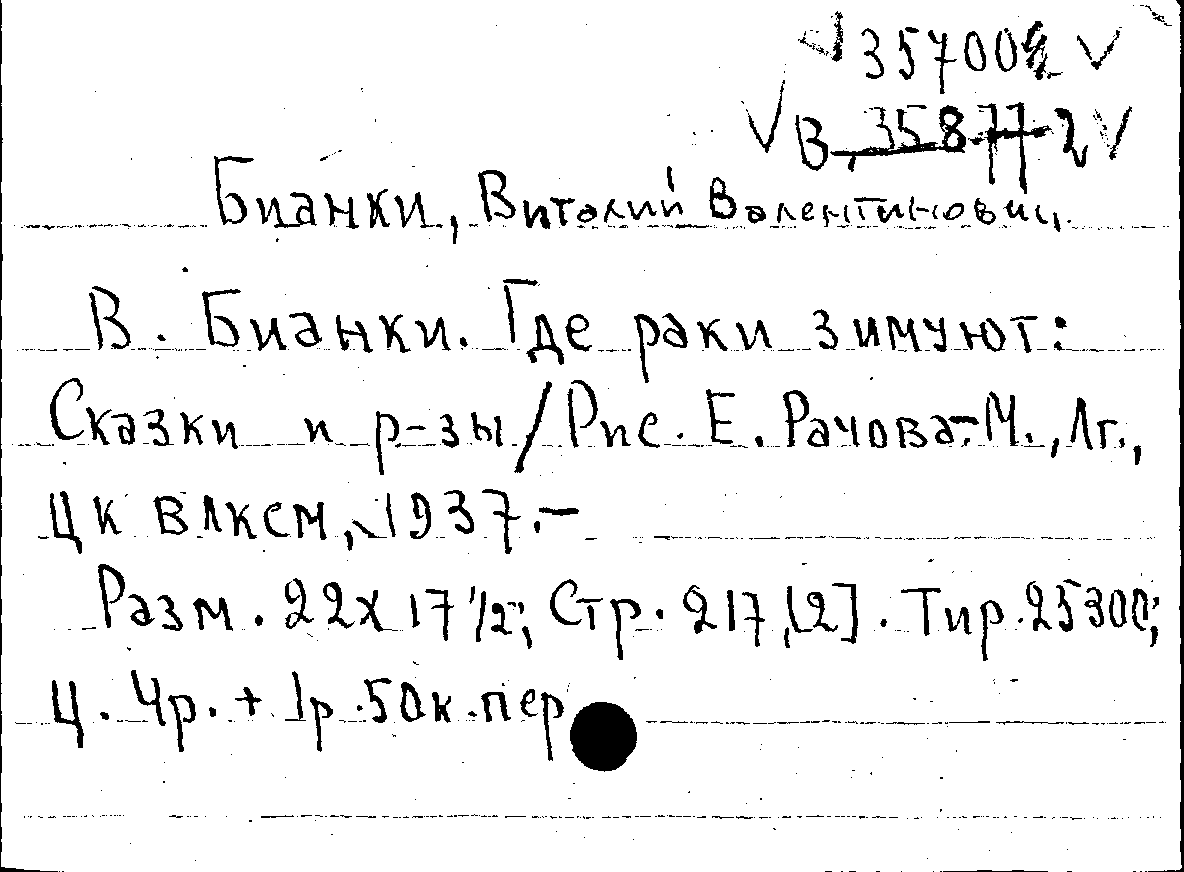 √ 35700 √
√ В 35877-2 √
Бианки, Виталий Валентинович.
В. Бианки. Где раки зимуют:
Сказки и р-зы / Рис. Е. Рачова.-М., Лг.,
ЦК ВЛКСМ, 1937.-
Разм. 22х17 1/2; Стр. 217, [2]. Тир. 25300;
Ц. 4р. + 1р. 50к. пер